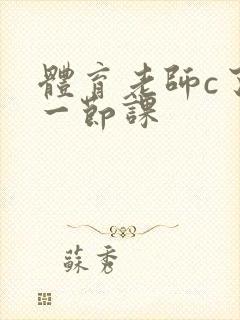 體育老師c了
一節課
蘇秀